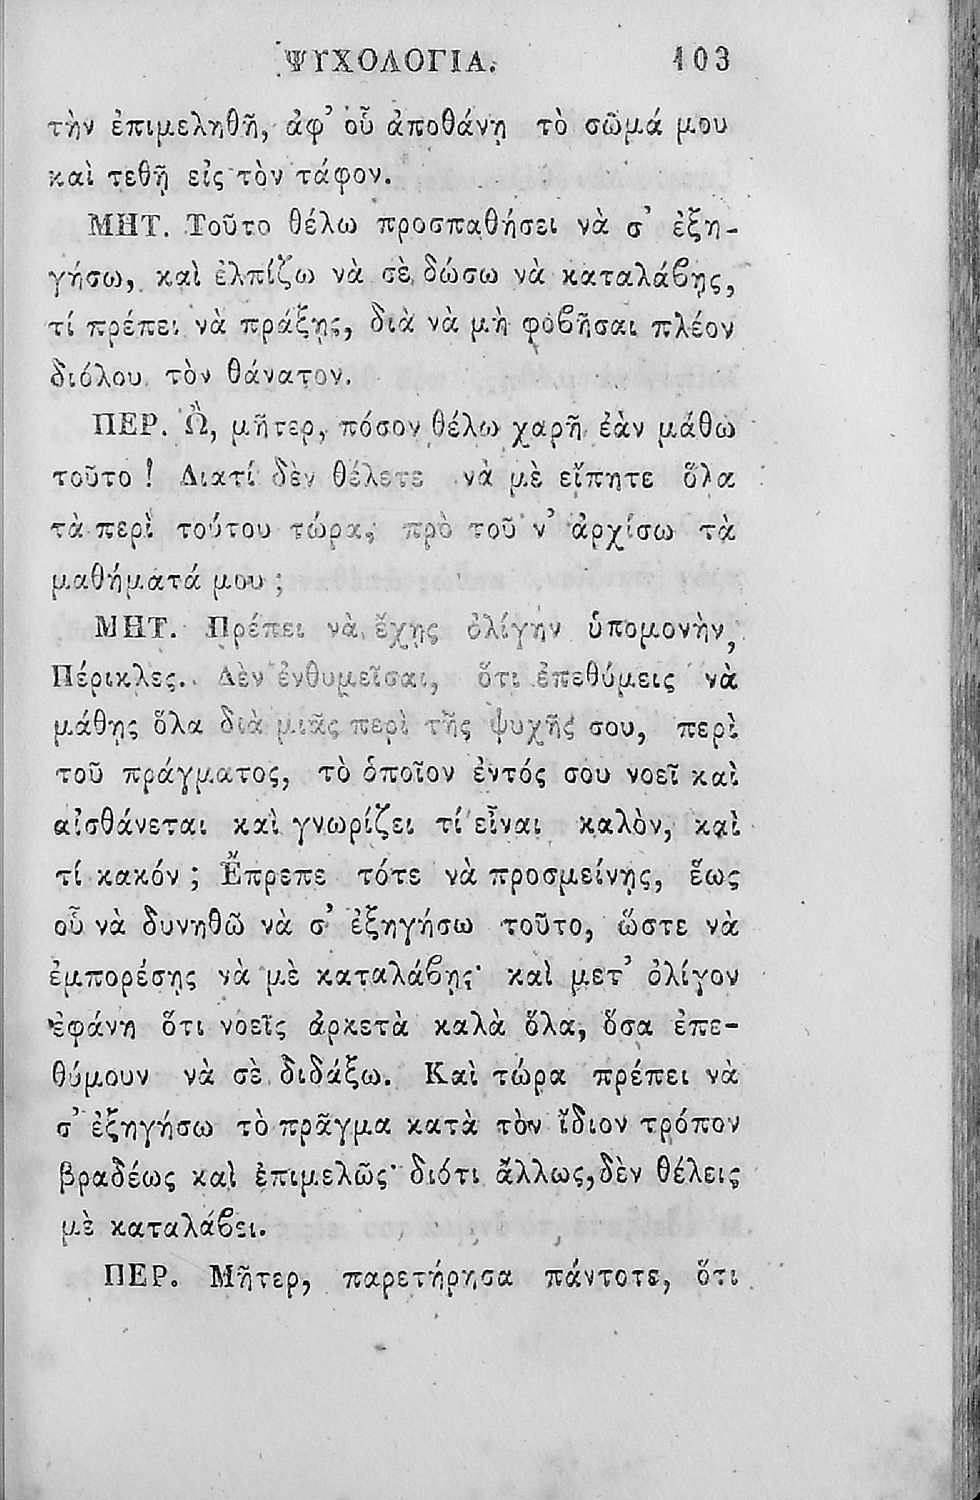 ΨΥΧΟΛΟΓΙΑ. 103
τὴν ἐπιμεληθῇ, ἀφ’ οὗ ἀποθάνῃ τὸ σῶμά μου
καὶ τεθῇ εἰς τὸν τάφον.
ΜΗΤ. Τοῦτο θέλω προσπαθήσει νὰ σ’ ἐξη-
γήσω, καὶ ἐλπίζω νὰ σὲ δώσω νὰ καταλάβῃς,
τί πρέπει νὰ πράξῃς, διὰ νὰ μὴ φοβῆσαι πλέον
διόλου τὸν θάνατον.
ΠΕΡ. Ὢ, μῆτερ, πόσον θέλω χαρῆ ἐὰν μάθω
τοῦτο ! Διατί δὲν θέλετε νὰ μὲ εἴπητε ὅλα
τὰ περὶ τούτου τώρα, πρὸ τοῦ ν’ ἀρχίσω τὰ
μαθήματά μου ;
ΜΗΤ. Πρέπει νὰ ἔχῃς ὀλίγην ὑπομονὴν,
Πέρικλες. Δὲν ἐνθυμεῖσαι, ὅτι ἐπεθύμεις νὰ
μάθῃς ὅλα διὰ μιᾶς περὶ τῆς ψυχῆς σου, περὶ
τοῦ πράγματος, τὸ ὁποῖον ἐντός σου νοεῖ καὶ
αἰσθάνεται καὶ γνωρίζει τί εἶναι καλὸν, καὶ
τί κακόν ; Ἔπρεπε τότε νὰ προσμείνῃς, ἕως
οὗ νὰ δυνηθῶ νὰ σ’ ἐξηγήσω τοῦτο, ὥστε νὰ
ἐμπορέσῃς νὰ μὲ καταλάβῃς· καὶ μετ’ ὀλίγον
ἐφάνη ὅτι νοεῖς ἀρκετὰ καλὰ ὅλα, ὅσα ἐπε-
θύμουν νὰ σὲ διδάξω. Καὶ τώρα πρέπει νὰ
σ’ ἐξηγήσω τὸ πρᾶγμα κατὰ τὸν ἴδιον τρόπον
βραδέως καὶ ἐπιμελῶς· διότι ἄλλως, δὲν θέλεις
μὲ καταλάβει.
ΠΕΡ. Μῆτερ, παρετήρησα πάντοτε, ὅτι